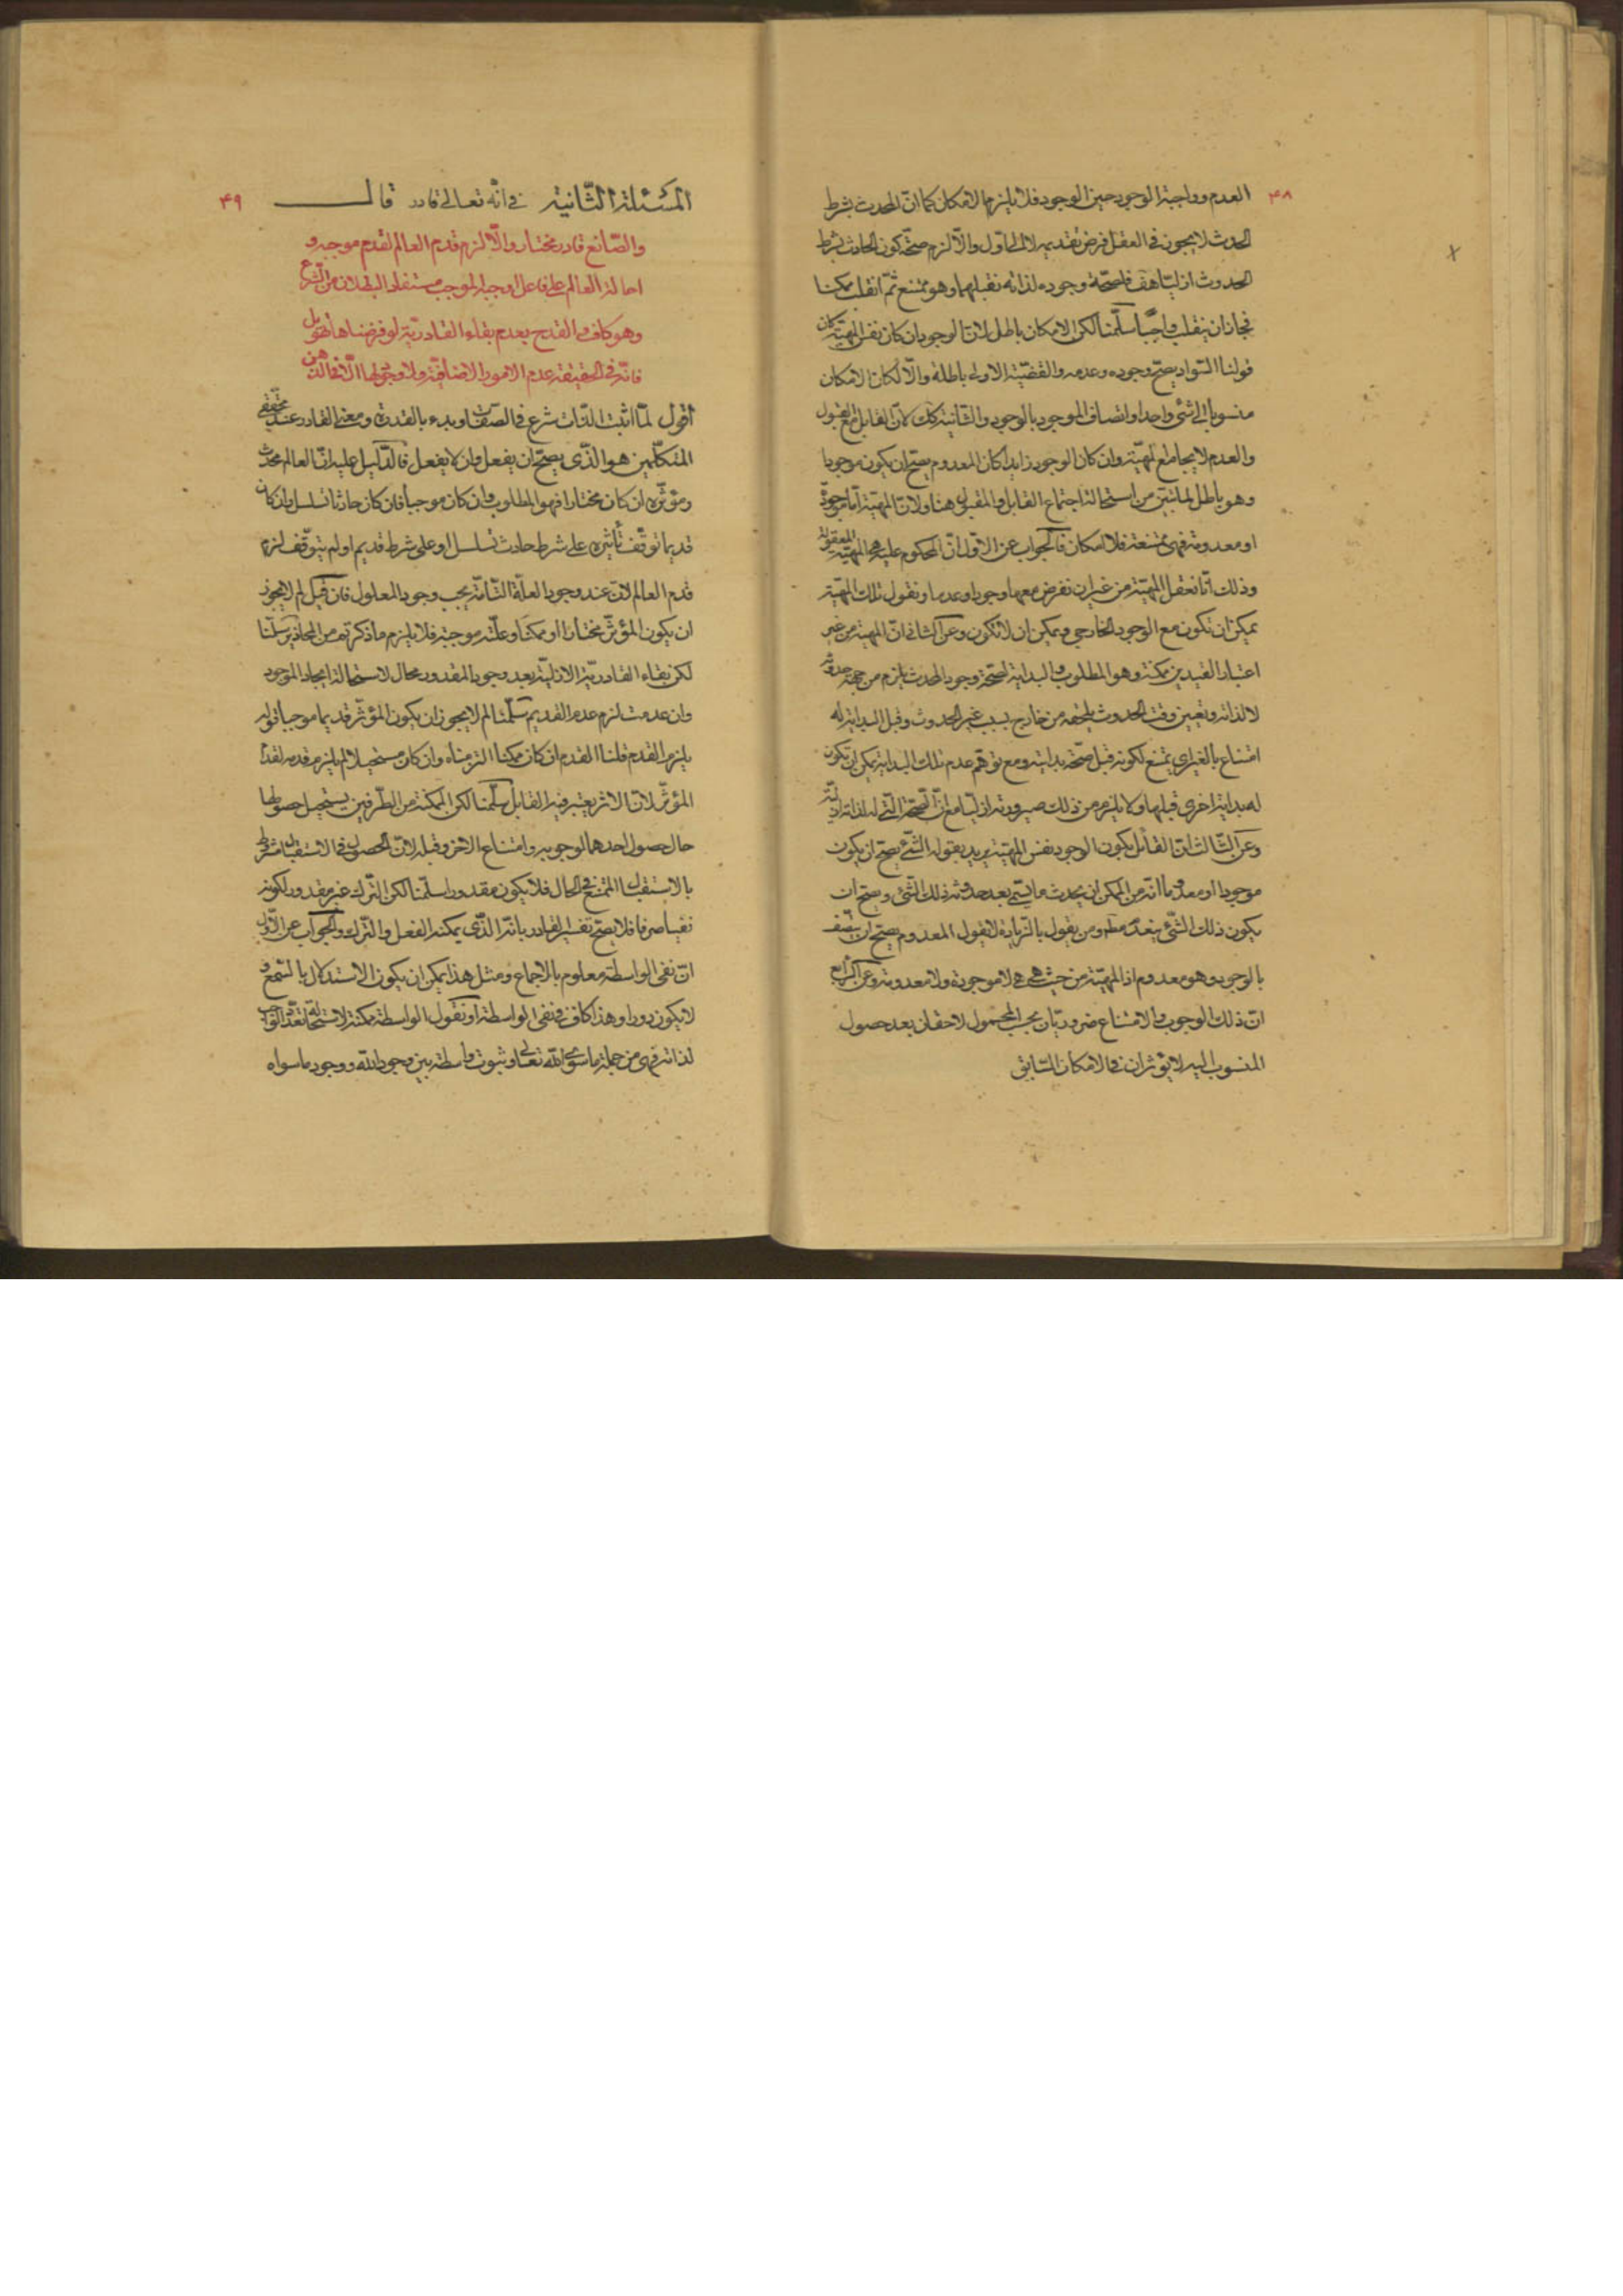 ۴۸
العدم وواجبة الوجود حين الوجود فلا يلزم الامكان كما ان المحدث بشرط
الحدوث لا يجوز في العقل فرض تقديمه لا الى اول والا لزم صحة كون الحادث بشرط
الحدوث ازليا هف فلصحة وجوده لذاته نقبلها وهو ممتنع ثم انقلب ممكنا
فجاز ان ينقلب واجبا سلمنا لكن الامكان باطل لان الوجود ان كان نفس المهية كان
قولنا السواد يصح وجوده وعدمه والقضية الاولى باطلة والا لكان الامكان
منسوبا الى شئ واحد او اتصاف الموجود بالوجود والثانية كك لان القابل مع القبول
والعدم لا يجامع المهية وان كان الوجود زايدا كان المعدوم يصح ان يكون موجودا
وهو باطل لما تبين من استحالة اجتماع القابل والمقبول هنا ولان المهية اما موجودة
او معدومة فهى ممتنعة فلا امكان فالجواب عن الاول ان المحكوم عليه هى المهية المعقولة
وذلك انا نعقل المهية من غير ان نفرض معها وجودا وعدما ونقول تلك المهية
يمكن ان تكون مع الوجود الخارجي ويمكن ان لا تكون وعن الثاني ان المهية من غير
اعتبار القيدين ممكنة وهو المطلوب والبداية لصحة وجود المحدث يلزم من جهة حدوثه
لا لذاته وتعيين وقت الحدوث يلحقه من خارج بسبب غير الحدوث وقبل البداية له
امتناع بالغير اي يمتنع لكونه قبل صحة بدايته ومع توهم عدم تلك البداية يمكن ان تكون
له بداية اخرى قبلها ولا يلزم من ذلك صيرورته ازليا مع ان الصحة التي له لذاته ازلية
وعن الثالث ان القائل بكون الوجود نفس المهية يريد بقوله الشئ يصح ان يكون
موجودا او معدوما انه من الممكن ان يحدث ما يسمى بعد حدوثه ذلك الشئ وصح ان
يكون ذلك الشئ ينعدم ومن يقول بالزيادة لا يقول المعدوم يصح ان يتصف
بالوجود وهو معدوم اذ المهية من حيث هي هي لا موجودة ولا معدومة وعن الرابع
ان ذلك الوجوب والامتناع ضروريان بحسب المحمول لاحقان بعد حصول
المنسوب اليه لا يؤثران في الامكان السابق
۴۹
المسئلة الثانية في انه تعالى قادر قال
والصانع قادر مختار والا لزم قدم العالم لقدم موجبه و
احالة العالم على فاعل اوجبه الموجب مستفاد البطلان من الشرع
وهو كاف والقدح بعدم بقاء القادرية لو فرضناها تهويل
فانه في الحقيقة عدم الامور الاضافية ولا وجود لها الا في الذهن
اقول لما اثبت الذات شرع في الصفات وبدء بالقدرة ومعنى القادر عند محققي
المتكلمين هو الذي يصح ان يفعل وان لا يفعل فالدليل عليه ان العالم محدث
ومؤثره ان كان مختارا فهو المطلوب وان كان موجبا فان كان حادثا تسلسل وان كان
قديما توقف تأثيره على شرط حادث تسلسل او على شرط قديم او لم يتوقف لزم
قدم العالم لان عند وجود العلة التامة يجب وجود المعلول فان قيل لم لا يجوز
ان يكون المؤثر مختارا او ممكنا وعلته موجبة فلا يلزم ما ذكرتم من المحاذير سلمنا
لكن بقاء القادرية الازلية بعد وجود المقدور محال لاستحالة ايجاد الموجود
وان عدمت لزم عدم القديم سلمنا لم لا يجوز ان يكون المؤثر قديما موجبا قوله
يلزم القدم قلنا القدم ان كان ممكنا التزمناه وان كان مستحيلا لم يلزم قدمه لقدم
المؤثر لان الاثر يعتبر فيه القابل سلمنا لكن المكنة من الطرفين يستحيل حصولها
حال حصول احدهما لوجوبه وامتناع الاخر وقبله لان الحصول في الاستقبال مشروط
بالاستقبال الممتنع في الحال فلا يكون مقدورا سلمنا لكن الترك غير مقدور لكونه
نفيا صرفا فلا يصح تفسير القادر بانه الذي يمكنه الفعل والترك والجواب عن الاول
ان نفي الواسطة معلوم بالاجماع ومثل هذا يمكن ان يكون الاستدلال بالسمع و
لا يكون دورا وهذا كاف في نفي الواسطة او نقول الواسطة ممكنة لاستحالة تعدد الواجب
لذاته فهى من جملة ما سوى الله تعالى وثبوت واسطة بين وجود الله ووجود ما سواه